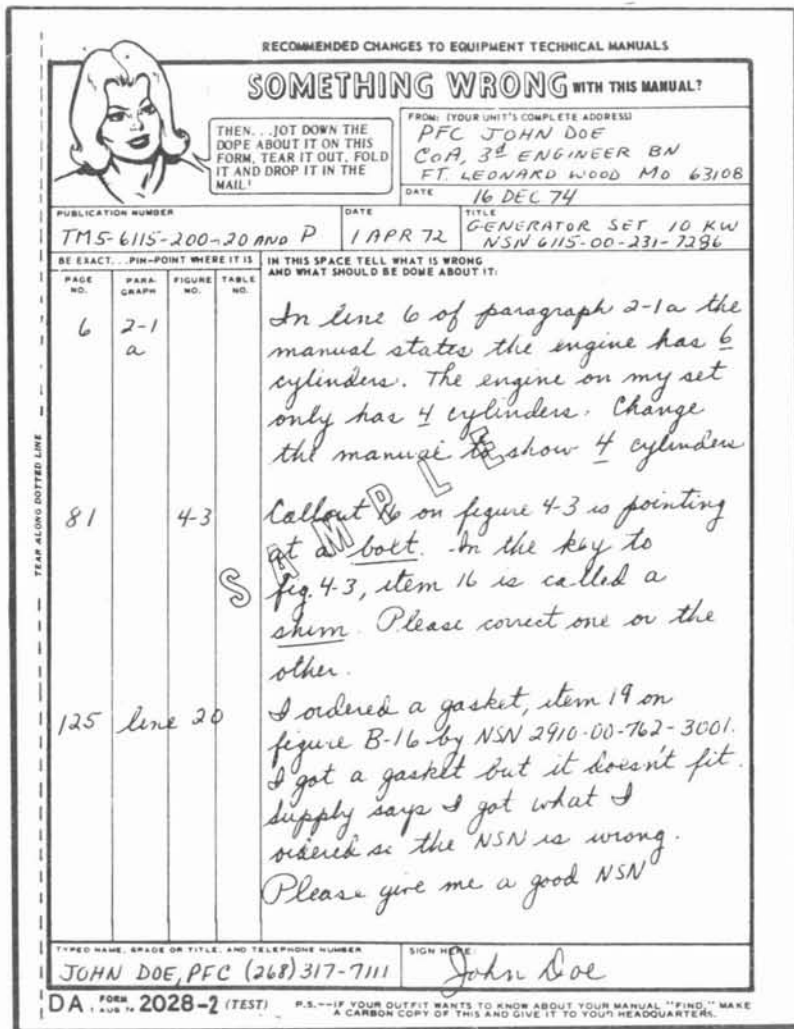 RECOMMENDED CHANGES TO EQUIPMENT TECHNICAL MANUALS
SOMETHING WRONG WITH THIS MANUAL?
THEN. . .JOT DOWN THE
DOPE ABOUT IT ON THIS
FORM, TEAR IT OUT, FOLD
IT AND DROP IT IN THE
MAIL!
FROM: (YOUR UNIT'S COMPLETE ADDRESS)
PFC JOHN DOE
CoA, 3d ENGINEER BN
FT. LEONARD WOOD MO 63108
DATE 16 DEC 74
PUBLICATION NUMBER
TM5-6115-200-20 AND P
DATE
1 APR 72
TITLE
GENERATOR SET 10 KW
NSN 6115-00-231-7286
BE EXACT. . .PIN-POINT WHERE IT IS
PAGE NO.
PARA-GRAPH
FIGURE NO.
TABLE NO.
IN THIS SPACE TELL WHAT IS WRONG
AND WHAT SHOULD BE DONE ABOUT IT:
6 2-1 a
In line 6 of paragraph 2-1a the
manual states the engine has 6
cylinders. The engine on my set
only has 4 cylinders. Change
the manual to show 4 cylinders
81 4-3
Callout 16 on figure 4-3 is pointing
at a bolt. In the key to
fig. 4-3, item 16 is called a
shim. Please correct one or the
other.
125 line 20
I ordered a gasket, item 19 on
figure B-16 by NSN 2910-00-762-3001.
I got a gasket but it doesn't fit.
Supply says I got what I
ordered so the NSN is wrong.
Please give me a good NSN
SAMPLE
TEAR ALONG DOTTED LINE
TYPED NAME, GRADE OR TITLE, AND TELEPHONE NUMBER
JOHN DOE, PFC (268) 317-7111
SIGN HERE:
John Doe
DA FORM 1 AUG 74 2028-2 (TEST)
P.S.--IF YOUR OUTFIT WANTS TO KNOW ABOUT YOUR MANUAL "FIND," MAKE
A CARBON COPY OF THIS AND GIVE IT TO YOUR HEADQUARTERS.